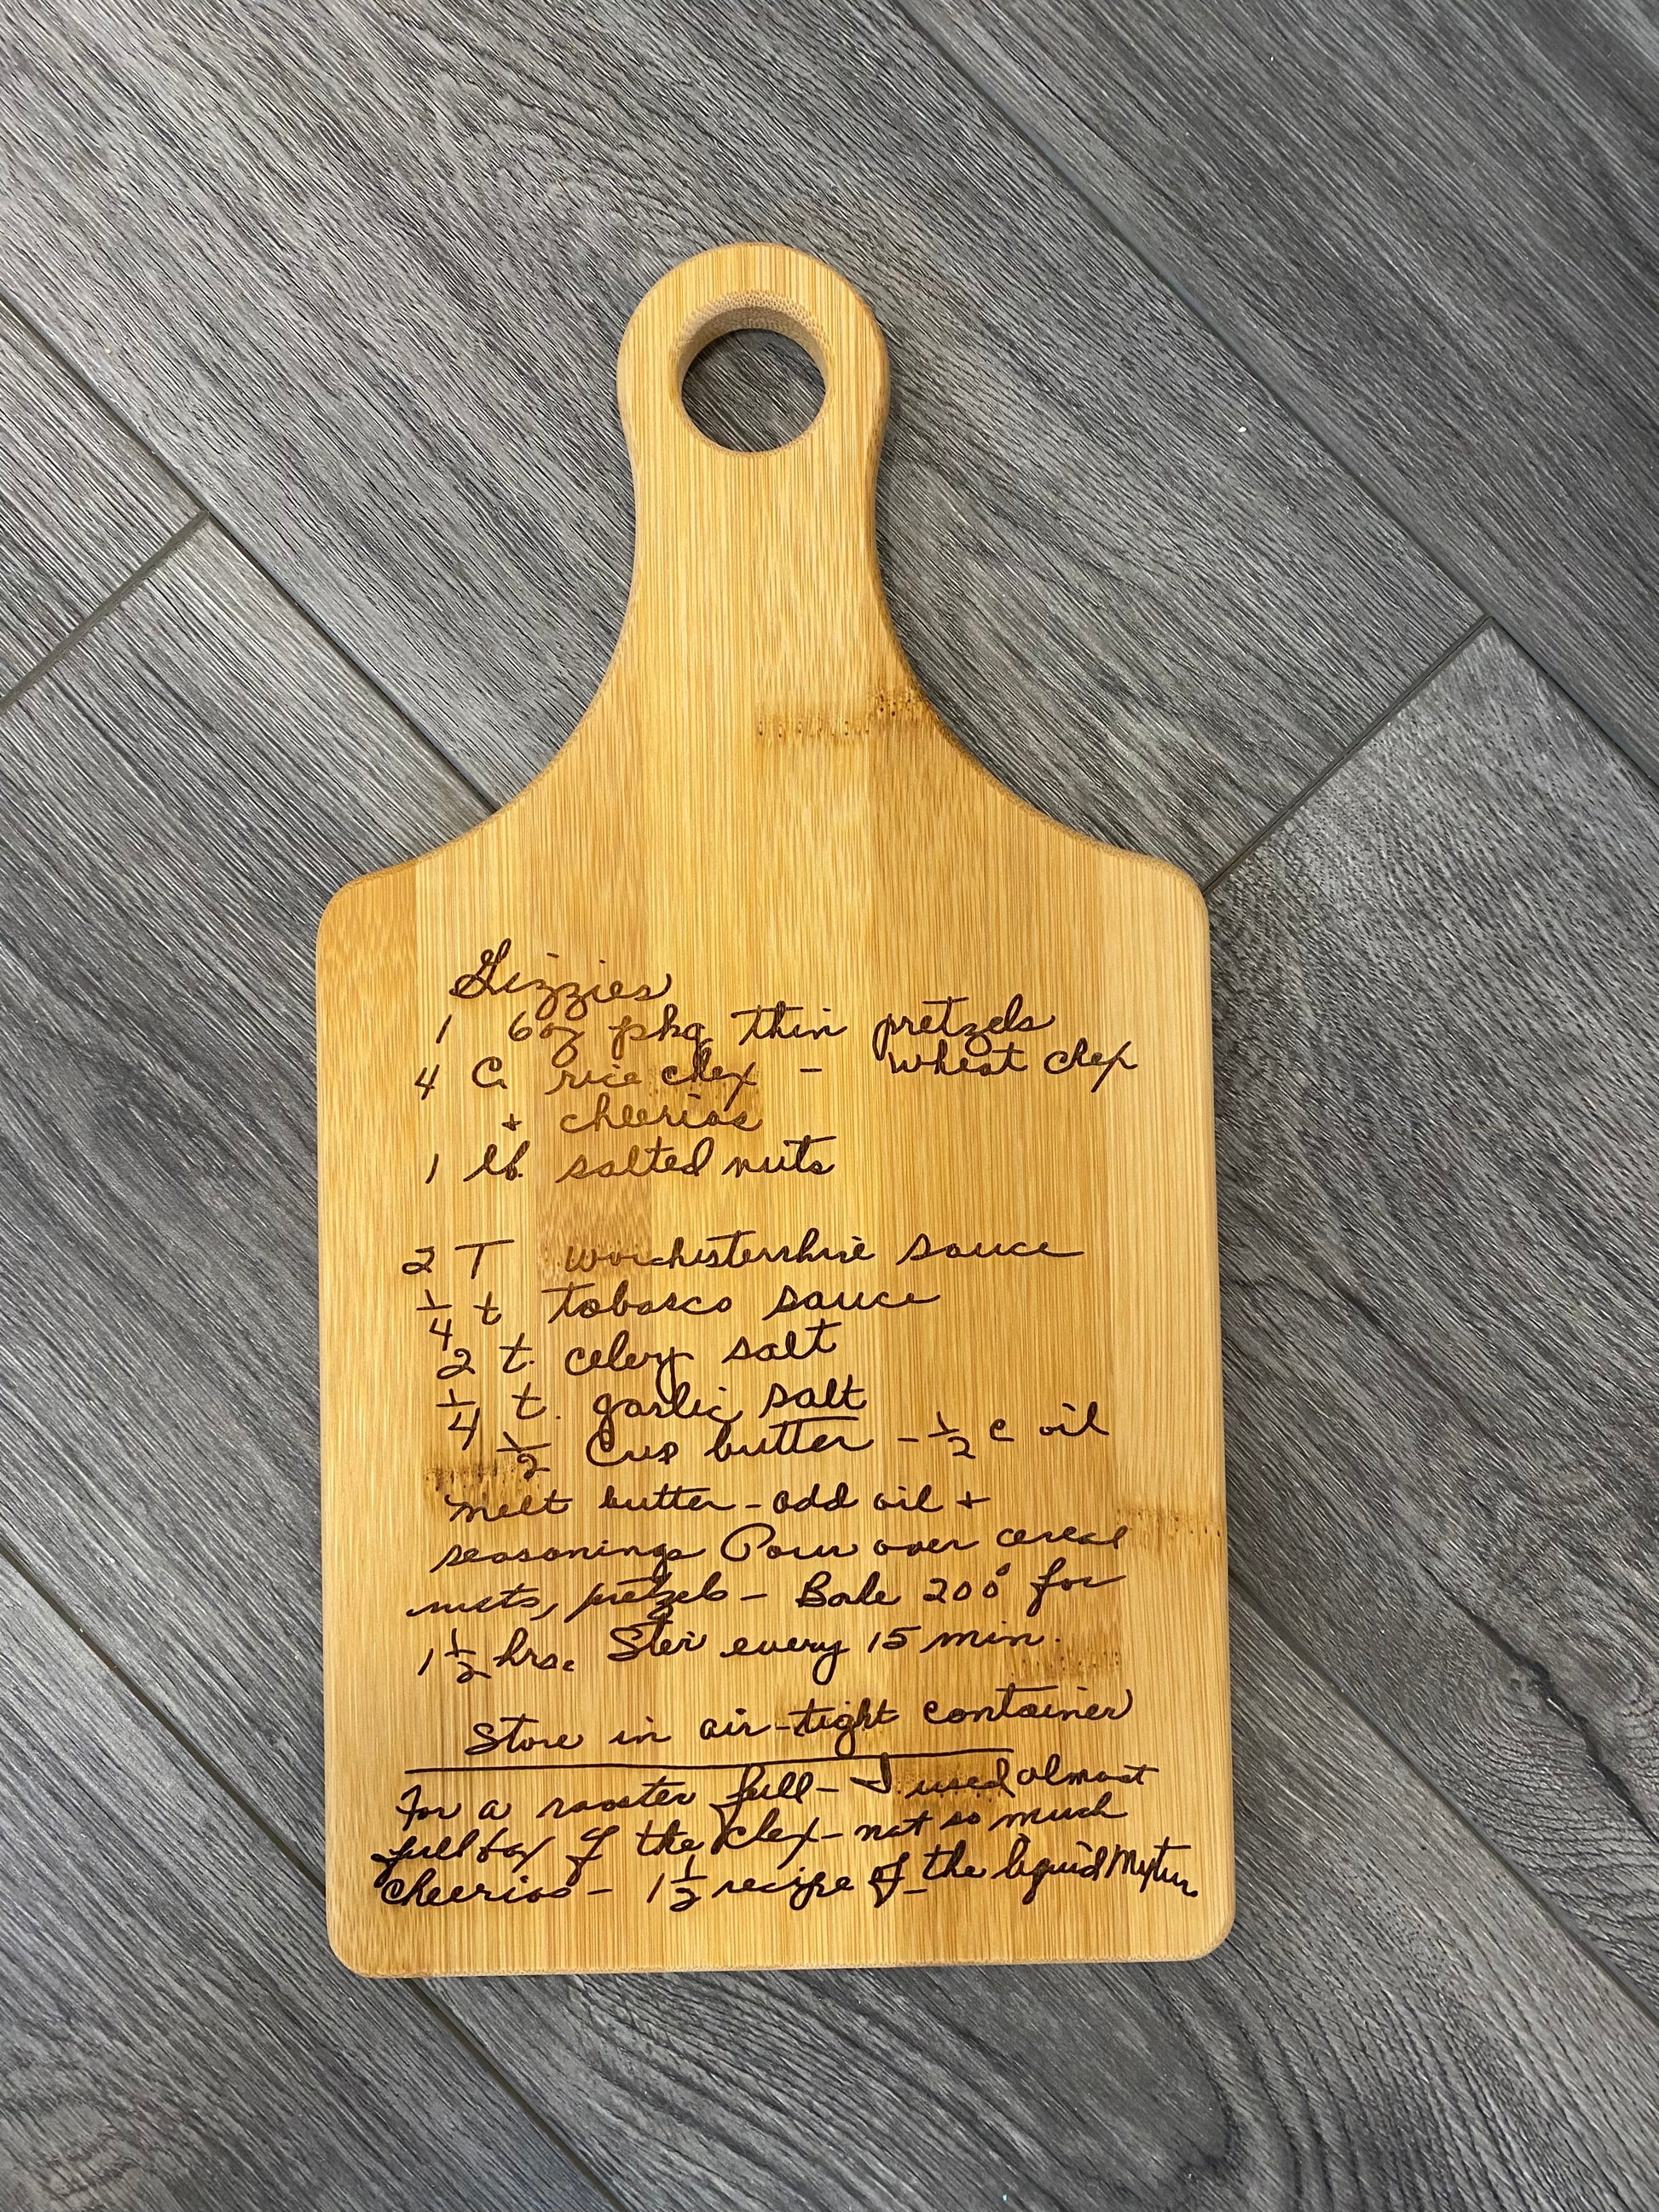 Gizzies
1 6oz pkg thin pretzels
4 C. rice chex - wheat chex
+ cheerios
1 lb. salted nuts
2 T worchestershire sauce
1/4 t tobasco sauce
2 t. celery salt
1/4 t. garlic salt
1/2 Cup butter - 1/2 c oil
melt butter - add oil +
seasonings Pour over cereal
nuts, pretzels - Bake 200° for
1 1/2 hrs. Stir every 15 min.
Store in air-tight container
For a rooster full - I used almost
full box of the chex - not so much
cheerios - 1 1/2 recipe of the liquid